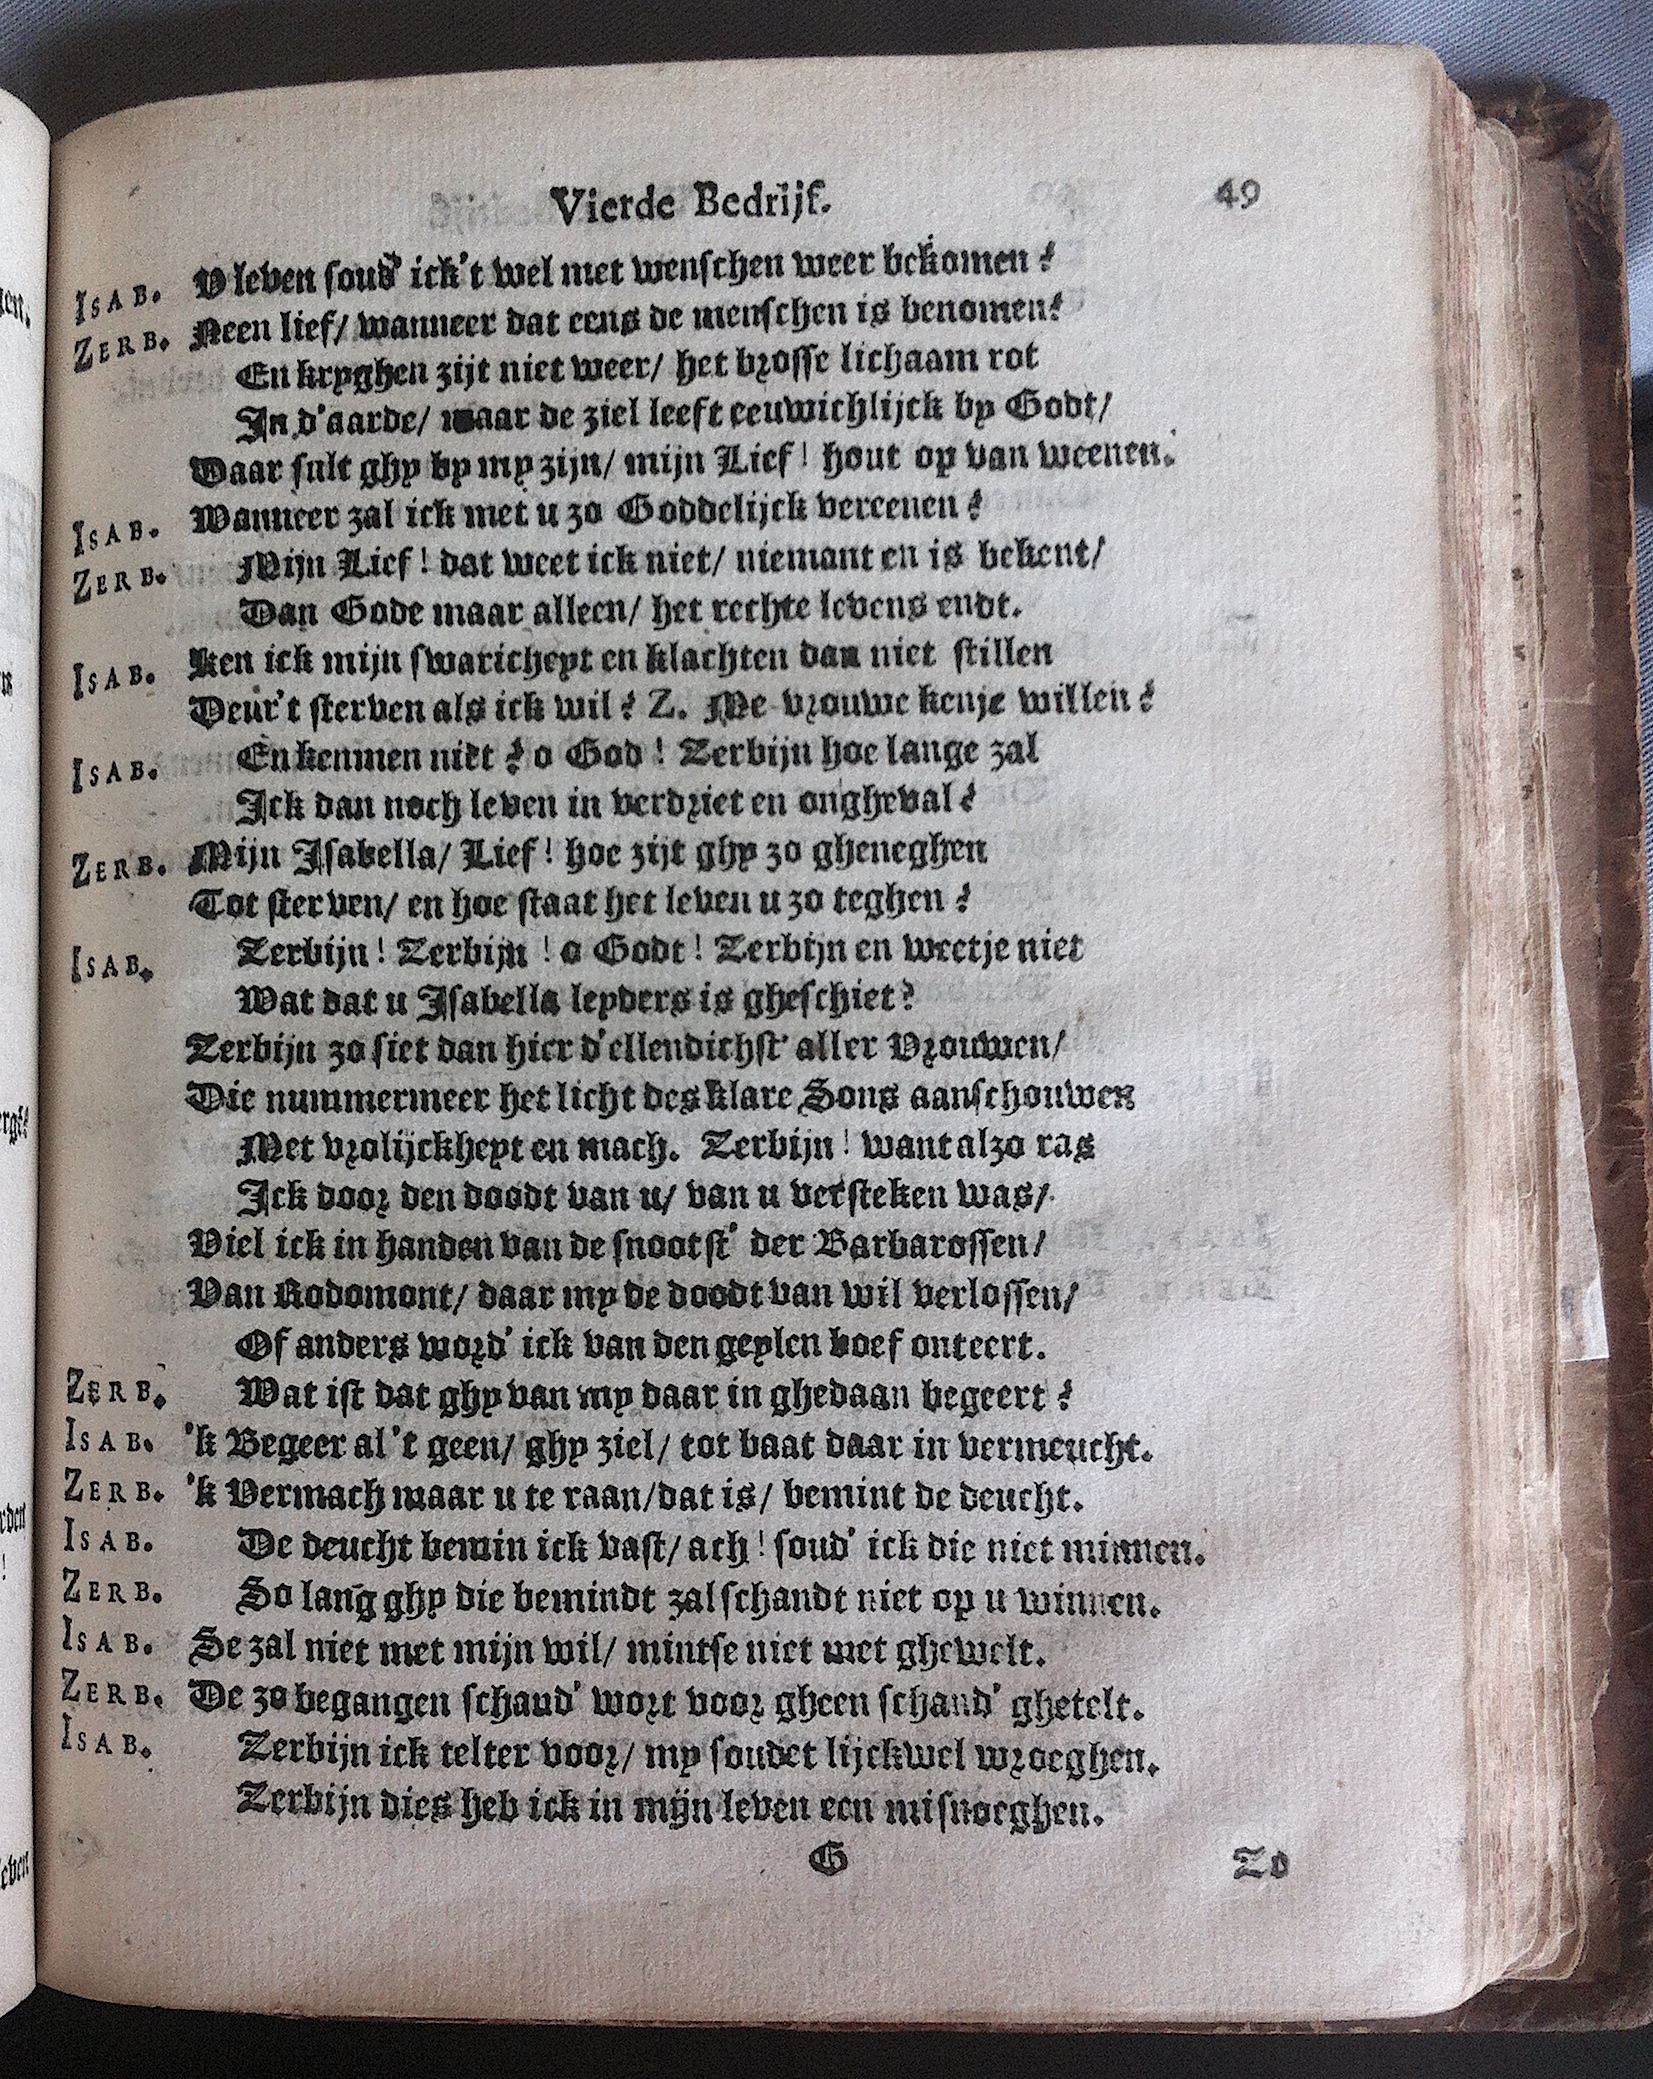 Vierde Bedrijf. 49
ISAB. V leven soud' ick't wel met wenschen weer bekomen?
ZERB. Neen lief/ wanneer dat eens de menschen is benomen?
En kryghen zijt niet weer/ het brosse lichaam rot
In d'aarde/ maar de ziel leeft eeuwichlijck by Godt/
Daar sult ghy by my zijn/ mijn Lief! hout op van weenen.
ISAB. Wanneer zal ick met u zo Goddelijck vereenen?
ZERB. Mijn Lief! dat weet ick niet/ niemant en is bekent/
Dan Gode maar alleen/ het rechte levens endt.
ISAB. Ken ick mijn swaricheyt en klachten dan niet stillen
Deur't sterven als ick wil? Z. Me vrouwe kenje willen?
ISAB. En kenmen niet? o God! Zerbijn hoe lange zal
Ick dan noch leven in verdriet en ongheval?
ZERB. Mijn Isabella/ Lief! hoe zijt ghy zo gheneghen
Tot sterven/ en hoe staat het leven u zo teghen?
ISAB. Zerbijn! Zerbijn! o Godt! Zerbijn en weetje niet
Wat dat u Isabella leyders is gheschiet?
Zerbijn zo siet dan hier d'ellendichst' aller Vrouwen/
Die nummermeer het licht des klare Sons aanschouwen
Met vrolijckheyt en mach. Zerbijn! want alzo ras
Ick door den doodt van u/ van u versteken was/
Viel ick in handen van de snootst' der Barbarossen/
Van Rodomont/ daar my de doodt van wil verlossen/
Of anders word' ick van den geylen boef onteert.
ZERB. Wat ist dat ghy van my daar in ghedaan begeert?
ISAB. 'k Begeer al 't geen/ ghy ziel/ tot baat daar in vermeucht.
ZERB. 'k Vermach maar u te raan/ dat is/ bemint de deucht.
ISAB. De deucht bemin ick vast/ ach! soud' ick die niet minnen.
ZERB. So lang ghy die bemindt zal schandt niet op u winnen.
ISAB. Se zal niet met mijn wil/ mintse niet met ghewelt.
ZERB. De zo begangen schand' wort voor gheen schand' ghetelt.
ISAB. Zerbijn ick telter voor/ my soudet lijckwel wroeghen.
Zerbijn dies heb ick in mijn leven een misnoeghen.
G Zo